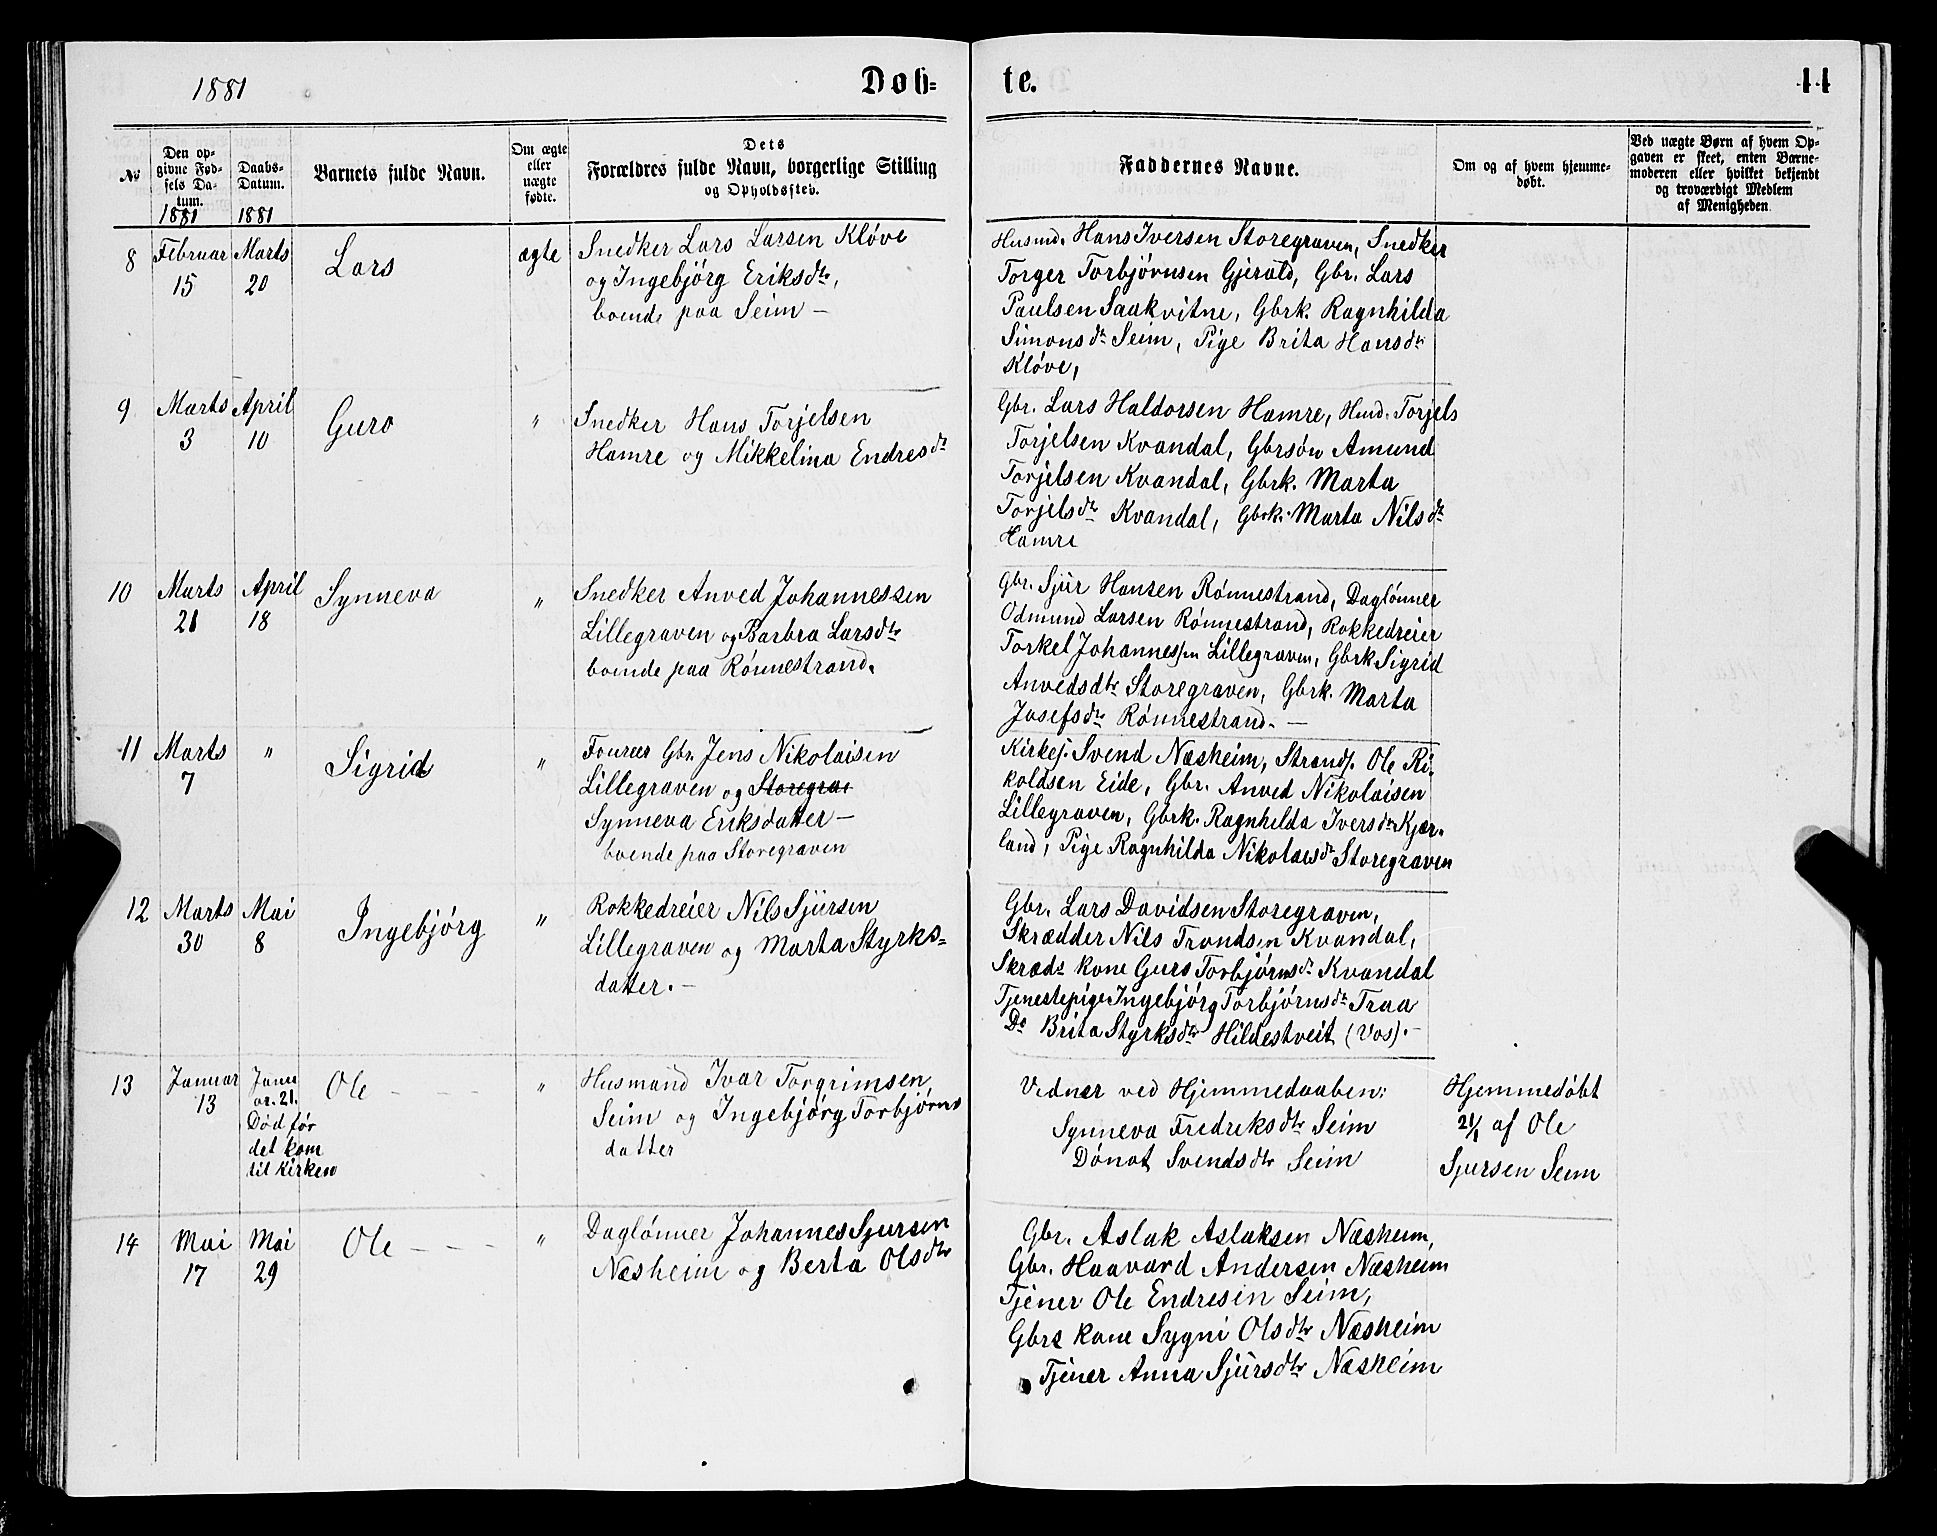 1881
Døb=
te.
11
№
Den op=
givne Fød=
sels Da=
tum.
1881
Daabs=
Datum.
1881
Barnets fulde Navn.
Om ægte
eller
uægte
fødte.
Dets
Forældres fulde Navn, borgerlige Stilling
og Opholdssted.
Faddernes Navne.
Om og af hvem hjemme=
døbt.
Ved uægte Børn af hvem Op=
gaven er skeet, enten Barne=
moderen eller hvilket bekjendt
og troværdigt Medlem
af Menigheden
8
Februar
15
Marts
20
Lars
ægte
Snedker Lars Larsen Kløve
og Ingebjörg Eriksdtr,
boende paa Seim —
Husmd. Hans Iversen Storegraven, Snedker
Torger Torbjørnsen Gjerald, Gbr. Lars
Paulsen Saakvitne, Gbrk. Ragnhilda
Simonsdtr Seim, Pige Brita Hansdtr
Kløve,
9
Marts
3
April
10
Guro
"
Snedker Hans Torjelsen
Hamre og Mikkelina Endresdtr
Gbr. Lars Haldorsen Hamre, Husd. Torjels
Torjelsen Kvandal, Gbrsøn Amund
Torjelsen Kvandal, Gbrk. Marta
Torjelsdtr Kvandal, Gbrk. Marta Nilsdtr
Hamre
10
Marts
21
April
18
Synneva
"
Snedker Anved Johannessen
Lillegraven og Barbra Larsdtr
boende paa Rónnestrand.
Gbr. Sjur Hansen Rónnestrand, Daglónner
Odmund Larsen Rónnestrand, Rokkedreier
Torkel Johannessen Lillegraven, Gbrk Sigrid
Anvedsdtr Storegraven, Gbrk. Marta
Josefsdtr Rónnestrand. —
11
Marts
7
"
Sigrid
"
Fourer Gbr. Jens Nikolaisen
Lillegraven og Storegrav
Synneva Eriksdatter —
boende paa Storegraven
Kirkesj. Svend Næsheim, Strands. Ole Ri.
koldsen Eide, Gbr. Anved Nikolaisen
Lillegraven, Gbrk. Ragnhilda Iversdtr Kjær.
land, Pige Ragnhilda Nikolaisdtr Storegraven
12
Marts
30
Mai
8
Ingebjórg
"
Rokkedreier Nils Sjursen
Lillegraven og Marta Styrks=
datter. —
Gbr. Lars Davidsen Storegraven,
Skrædder Nils Trondsen Kvandal,
Skræds kone Guro Torbjórnsdtr Kvandal
Tjenestepige Ingebjórg Torbjórnsdtr Traa
Do Brita Styrksdtr Hildestveit (Vos). —
13
Januar
13
Janu
ar. 21.
Död før
det kom
til Kirken
Ole — — —
"
Husmand Ivar Torgrimsen,
Seim og Ingebjórg Torbjórns
datter
Vidner ved Hjemmedaaben:
Synneva Fredriksdtr Seim
Dónot Svendsdtr Seim
Hjemmedóbt
21/1 af Ole
Sjursen Seim
14
Mai
17
Mai
29
Ole — — —
"
Daglónner Johannes Sjursen
Næsheim og Berta Olsdtr
Gbr. Aslak Aslaksen Næsheim,
Gbr. Haavard Andersen Næsheim
Tjener Ole Endresen Seim,
Gbrs kone Sygni Olsdtr Næsheim
Tjener Anna Sjursdtr Næsheim